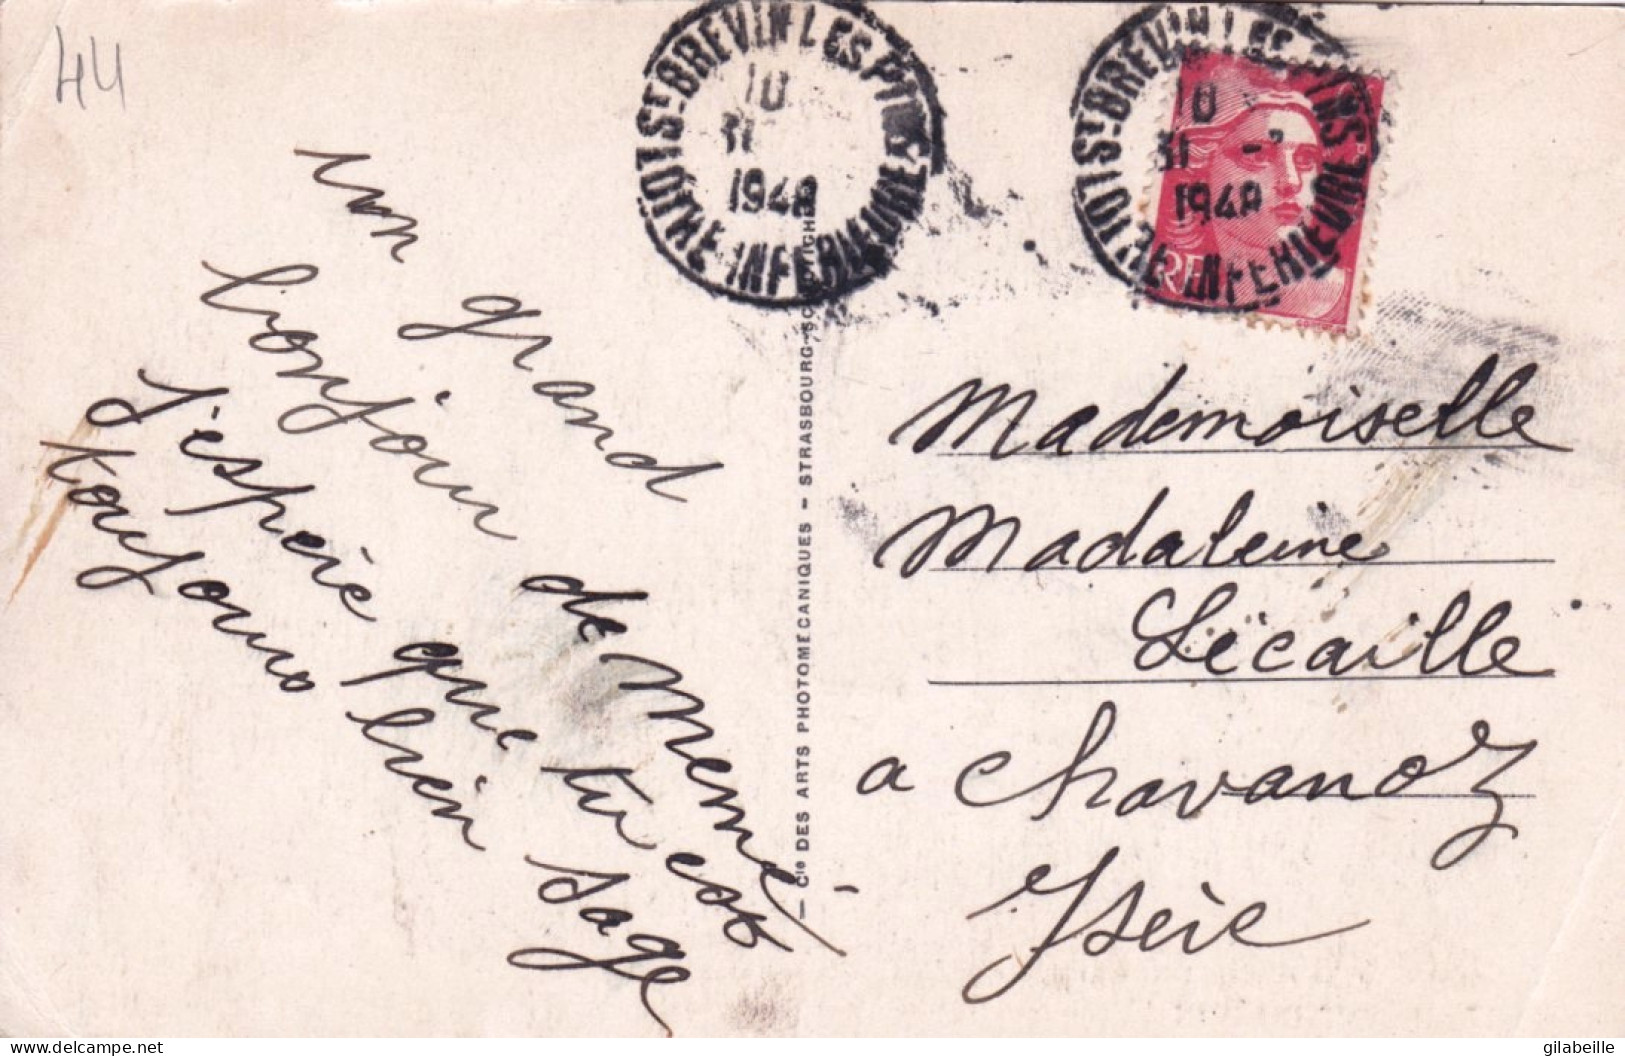 44
ST BREVIN LES PINS
10
31
1948
LOIRE INFERIEURE
ST BREVIN LES PINS
10
31 -
1948
LOIRE INFERIEURE
un grand
bonjour de Memé
J'espère que tu est
toujours bien sage
— Cie DES ARTS PHOTOMÉCANIQUES - STRASBOURG-SCHILTIGHEIM
Mademoiselle
Madaleine
Lecaille
a Chavanoz
Isère
gilabeille